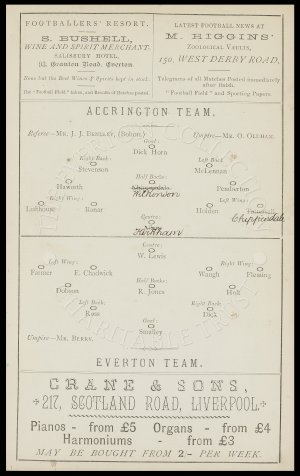 FOOTBALLERS' RESORT.
S. BUSHELL,
WINE AND SPIRIT MERCHANT.
SALISBURY HOTEL,
Road, Everton.
None but the Best Wines & Spirits kept in stock.
The "Football Field" taken, and Results of Matches posted.
LATEST FOOTBALL NEWS AT
M. HIGGINS'
ZOOLOGICAL VAULTS,
150, WEST DERBY ROAD,
Telegrams of all Matches Posted immediately
after finish.
"Football Field" and Sporting Papers.
ACCRINGTON TEAM.
Referee—MR. J. J. BENTLEY, (Bolton.) Umpire—MR. O. OLDHAM.
Goal:
Dick Horn
Right Back: Left Back:
Stevenson McLennan
Half Backs:
Haworth Pemberton
Right Wing: Left Wing:
Lofthouse Bonar Holden Chippendale
Centre:
Kirkham
Centre:
W. Lewis
Left Wing: Right Wing:
Farmer E. Chadwick Waugh Fleming
Half Backs:
Dobson R. Jones Holt
Left Back: Right Back:
Ross Dick
Goal:
Smalley
Umpire—MR. BERRY.
EVERTON TEAM.
CRANE & SONS,
217, SCOTLAND ROAD, LIVERPOOL.
Pianos - from £5 Organs - from £4
Harmoniums - from £3
MAY BE BOUGHT FROM 2/- PER WEEK.